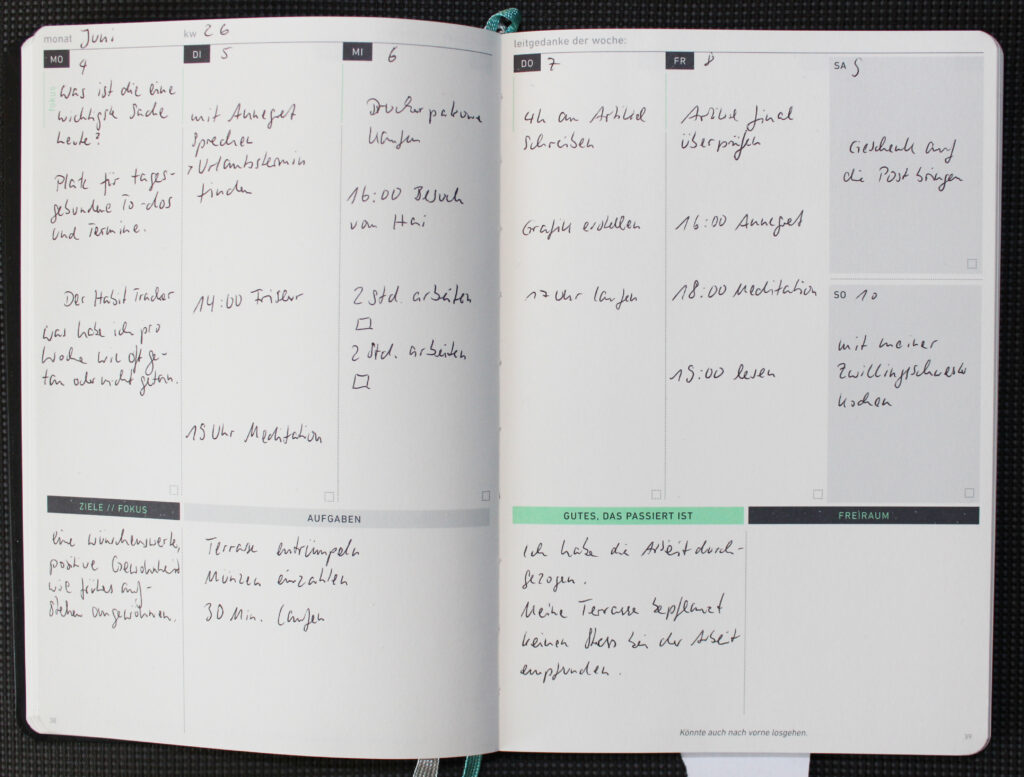 monat Juni
kw 26
MO 4
fokus
Was ist die eine
wichtigste Sache
heute?
Platz für tages-
gebundene To-dos
und Termine.
Der Habit Tracker
Was habe ich pro
Woche wie oft ge-
tan oder nicht getan.
DI 5
mit Annegret
sprechen
> Urlaubstermin
finden
14:00 Friseur
19 Uhr Meditation
MI 6
Druckerpatrone
kaufen
16:00 Besuch
von Hai
2 Std. arbeiten
2 Std. arbeiten
ZIELE // FOKUS
eine wünschenswerte,
positive Gewohnheit
wie frühes auf-
stehen angewöhnen.
AUFGABEN
Terrasse entrümpeln
Münzen einzahlen
30 Min. laufen
38
leitgedanke der woche:
DO 7
4h an Artikel
schreiben
Grafik erstellen
17 Uhr laufen
FR 8
Artikel final
überprüfen
16:00 Annegret
18:00 Meditation
19:00 lesen
SA 9
Geschenk auf
die Post bringen
SO 10
mit meiner
Zwillingsschwester
kochen
GUTES, DAS PASSIERT IST
Ich habe die Arbeit durch-
gezogen.
Meine Terrasse bepflanzt
keinen Stress bei der Arbeit
empfunden.
FREIRAUM
Könnte auch nach vorne losgehen.
39